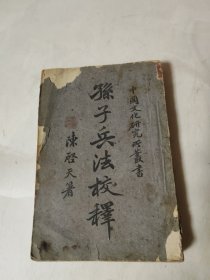 中國文化研究所叢書
孫子兵法校釋
陳啓天著